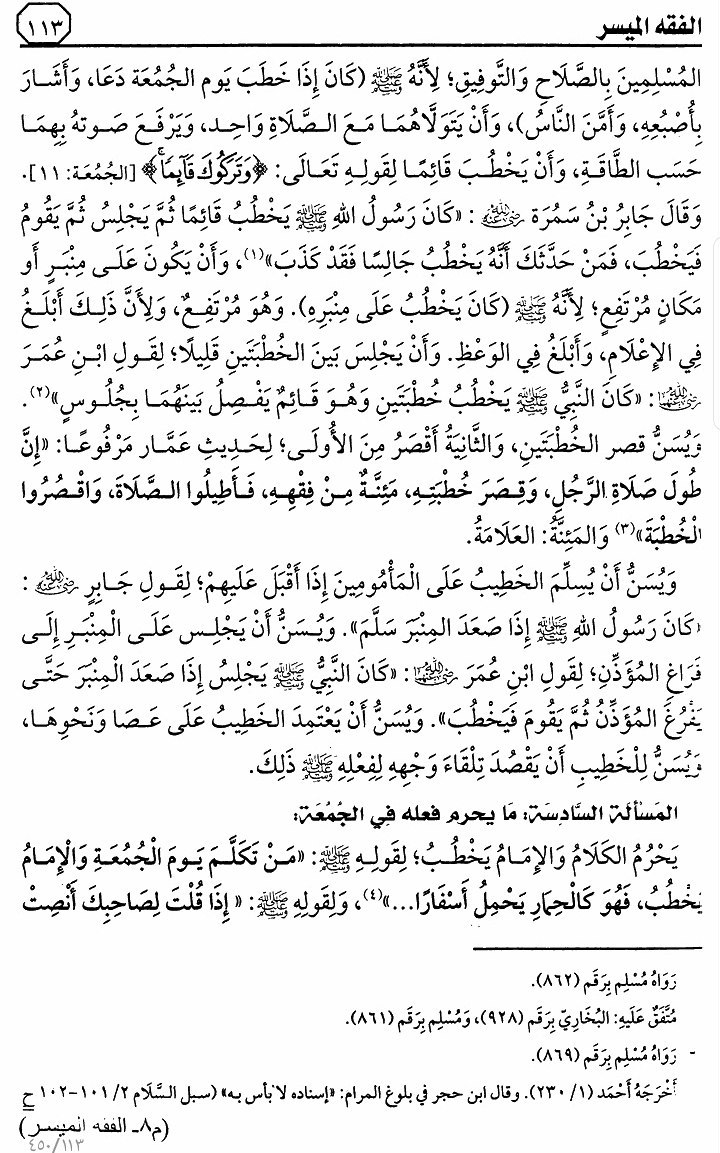 الفقه الميسر
١١٣
المُسْلِمِينَ بِالصَّلَاحِ وَالتَّوفِيقِ؛ لِأَنَّهُ ﷺ (كَانَ إِذَا خَطَبَ يَوم الجُمُعَة دَعَا، وَأَشَارَ
بِأُصْبُعِهِ، وَأَمَّنَ النَّاسُ)، وَأَنْ يَتَولَّاهُمَا مَعَ الصَّلَاةِ وَاحِد، وَيَرْفَعَ صَوتهُ بِهِمَا
حَسَب الطَّاقَةِ، وَأَنْ يَخْطُبَ قَائِمًا لِقَولِهِ تَعَالَى: ﴿وَتَرَكُوكَ قَآئِمٗاۚ﴾ [الجُمُعَة: ١١].
وَقَالَ جَابِرُ بْنُ سَمُرَة رضي الله عنه: «كَانَ رَسُولُ اللهِ ﷺ يَخْطُبُ قَائِمًا ثُمَّ يَجْلِسُ ثُمَّ يَقُومُ
فَيَخْطُبَ، فَمَنْ حَدَّثَكَ أَنَّهُ يَخْطُبُ جَالِسًا فَقَدْ كَذَبَ»(١)، وَأَنْ يَكُونَ عَلَى مِنْبَرٍ أَو
مَكَانٍ مُرْتَفِعٍ؛ لِأَنَّهُ ﷺ (كَانَ يَخْطُبُ عَلَى مِنْبَرِهِ). وَهُوَ مُرْتَفِعٌ، وَلِأَنَّ ذَلِكَ أَبْلَغُ
فِي الإِعْلَامِ، وَأَبْلَغُ فِي الوَعْظِ. وَأَنْ يَجْلِسَ بَينَ الخُطْبَتَينِ قَلِيلًا؛ لِقَولِ ابْنِ عُمَرَ
رضي الله عنهما: «كَانَ النَّبِيُّ ﷺ يَخْطُبُ خُطْبَتَينِ وَهُوَ قَائِمٌ يَفْصِلُ بَينَهُمَا بِجُلُوسٍ»(٢).
وَيُسَنُّ قصر الخُطْبَتَينِ، وَالثَّانِيَةُ أَقْصَرُ مِنَ الأُولَى؛ لِحَدِيثِ عَمَّار مَرْفُوعًا: «إِنَّ
طُولَ صَلَاةِ الرَّجُلِ، وَقِصَرَ خُطْبَتِهِ، مَئِنَّةٌ مِنْ فِقْهِهِ، فَأَطِيلُوا الصَّلَاةَ، وَاقْصُرُوا
الْخُطْبَةَ»(٣) وَالمَئِنَّةُ: العَلَامَةُ.
وَيُسَنُّ أَنْ يُسلِّمَ الخَطِيبُ عَلَى الْمَأْمُومِينَ إِذَا أَقْبَلَ عَلَيهِمْ؛ لِقَولِ جَابِرٍ رضي الله عنه:
«كَانَ رَسُولُ اللهِ ﷺ إِذَا صَعَدَ المِنْبَرَ سَلَّمَ». وَيُسَنُّ أَنْ يَجْلِس عَلَى الْمِنْبَرِ إِلَى
فَرَاغِ المُؤَذِّنِ؛ لِقَولِ ابْنِ عُمَرَ رضي الله عنهما: «كَانَ النَّبِيُّ ﷺ يَجْلِسُ إِذَا صَعَدَ الْمِنْبَرَ حَتَّى
يَفْرُغَ المُؤَذِّنُ ثُمَّ يَقُومَ فَيَخْطُبَ». وَيُسَنُّ أَنْ يَعْتَمِدَ الخَطِيبُ عَلَى عَصَا وَنَحْوِهَا،
وَيُسَنُّ لِلْخَطِيبِ أَنْ يَقْصُدَ تِلْقَاءَ وَجْهِهِ لِفِعْلِهِ ﷺ ذَلِكَ.
المَسألة السَّادِسَة: مَا يحرم فعله في الجُمُعَة:
يَحْرُمُ الكَلَامُ وَالإِمَامُ يَخْطُبُ؛ لِقَولِهِ ﷺ: «مَنْ تَكَلَّمَ يَومَ الْجُمُعَةِ وَالإِمَامُ
يَخْطُبُ، فَهُوَ كَالْحِمَارِ يَحْمِلُ أَسْفَارًا...»(٤)، وَلِقَولِهِ ﷺ: «إِذَا قُلْتَ لِصَاحِبِكَ أَنْصِتْ
رَوَاهُ مُسْلِم بِرَقَم (٨٦٢).
مُتَّفَقٌ عَلَيهِ: البُخَارِيّ بِرَقَم (٩٢٨)، وَمُسْلِم بِرَقَم (٨٦١).
- رَوَاهُ مُسْلِم بِرَقَم (٨٦٩).
أَخْرَجَهُ أَحْمَد (١/ ٢٣٠). وقال ابن حجر في بلوغ المرام: «إسناده لا بأس به» (سبل السَّلَام ٢/ ١٠١-١٠٢ ح
(م٨- الفقه الميسر)
٤٥٠/١١٣